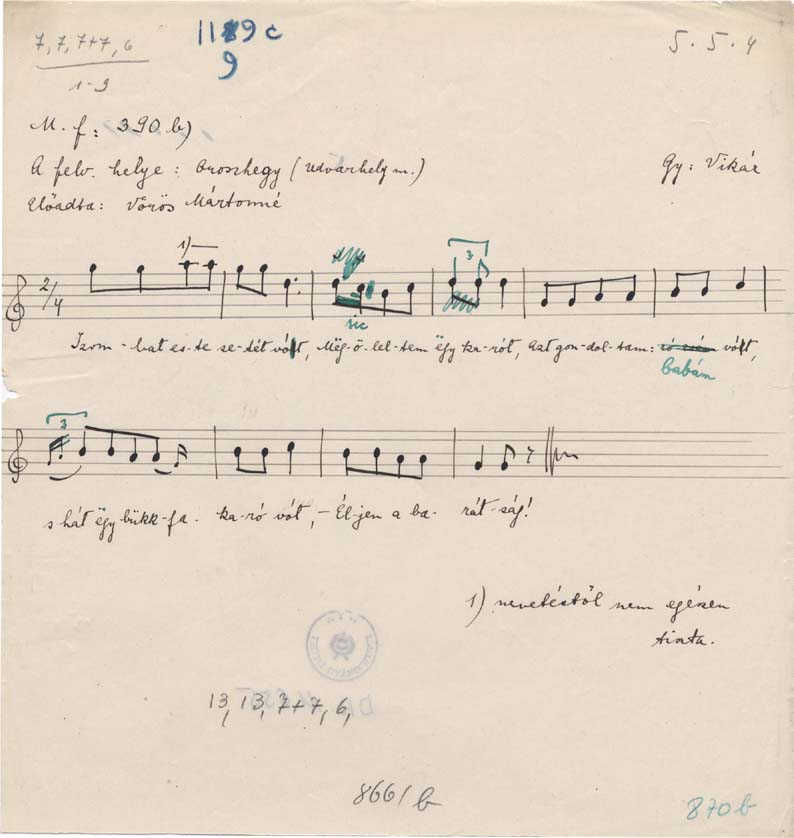 7, 7, 7+7, 6
1-9
1189 c
9
5. 5. 4
M. f: 390 b)
A felv. helye: Oroszhegy (Udvarhely m.)
Gy: Vikár
Előadta: Vörös Mártonné
1)
3
2/4
sic
Szom-bat es-te se-tét vót, Mëg-ö-lel-tem ëgy ka-rót, Azt gon-dol-tam: vót,
babám
3
s hát ëgy bükk-fa- ka-ró vót, - Él-jen a ba- rát-ság!
1) nevetéstől nem egészen
tiszta.
13, 13, 7+7, 6,
866/b
870 b